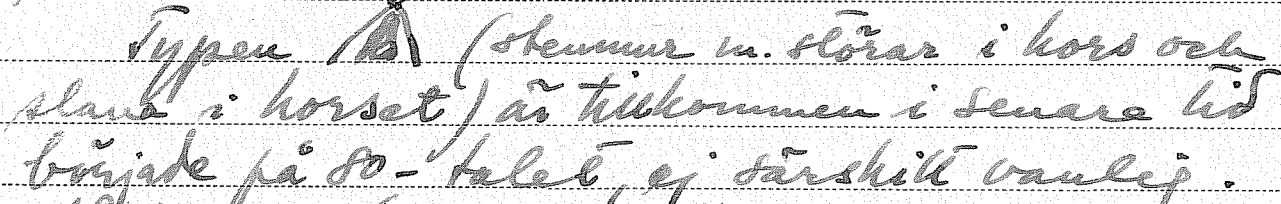 Typen (stenmur m. störar i kors och
slana i korset) är tillkommen i senare tid
började på 80-talet, ej särskilt vanlig.